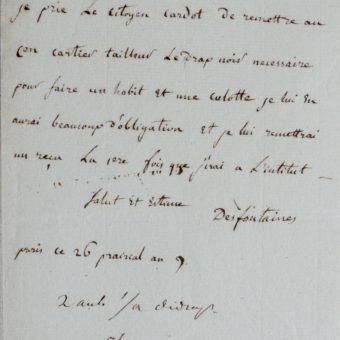 je prie Le citoyen cardot de remettre au
cen cartier tailleur Le drap noir necessaire
pour faire un habit et une culotte je lui En
aurai beaucoup d'obligation Et je lui remettrai
un reçu La 1ere fois que j'irai a L'institut -
Salut Et Estime
Desfontaines
paris ce 26 prairial an 9.
2 aul 1/2